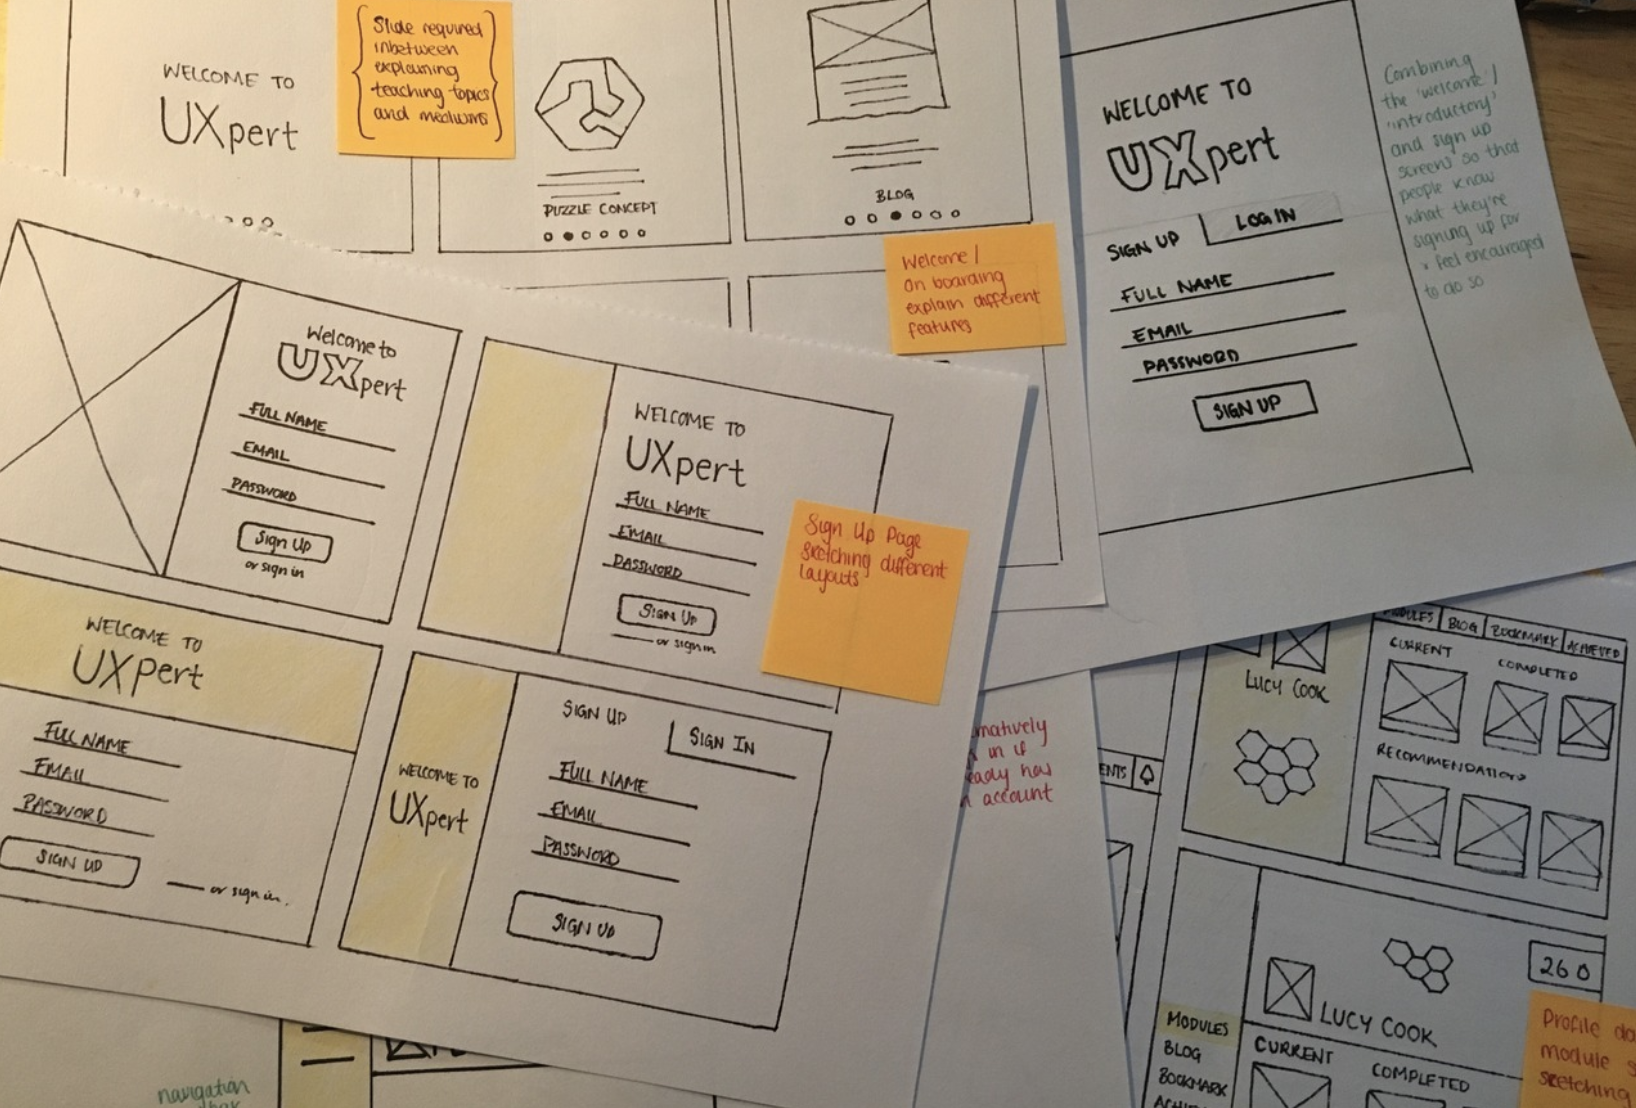 WELCOME TO
UXpert
Slide required
inbetween
explaining
teaching topics
and mediums
PUZZLE CONCEPT
BLOG
Welcome /
On boarding
explain different
features
WELCOME TO
UXpert
SIGN UP
LOG IN
FULL NAME
EMAIL
PASSWORD
SIGN UP
Combining
the 'welcome' /
'introductory'
and sign up
screens so that
people know
what they're
signing up for
+ feel encouraged
to do so
Welcome to
UXpert
FULL NAME
EMAIL
PASSWORD
Sign Up
or sign in
WELCOME TO
UXpert
FULL NAME
EMAIL
PASSWORD
SIGN UP
or sign in
Sign Up Page
sketching different
layouts
WELCOME TO
UXpert
FULL NAME
EMAIL
PASSWORD
SIGN UP
or sign in.
WELCOME TO
UXpert
SIGN UP
SIGN IN
FULL NAME
EMAIL
PASSWORD
SIGN UP
in if
account
MODULES
BLOG
BOOKMARK
ACHIEVED
LUCY COOK
CURRENT
COMPLETED
RECOMMENDATIONS
260
LUCY COOK
MODULES
BLOG
BOOKMARK
CURRENT
COMPLETED
Profile
module
sketching
navigation